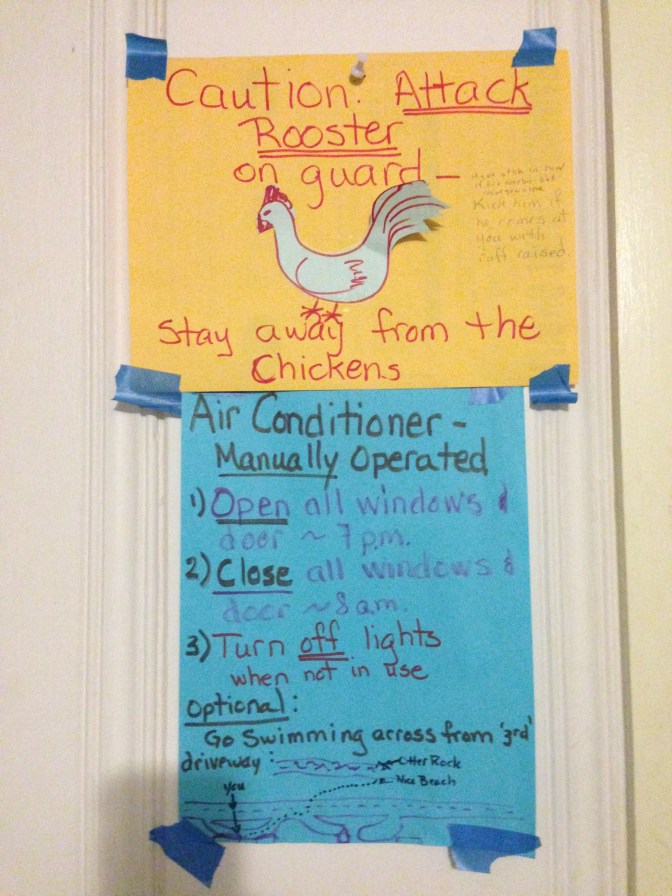 Caution: Attack
Rooster
on guard –
Kick him if
he comes at
you with
raised.
Stay away from the
Chickens
Air Conditioner –
Manually Operated
1) Open all windows &
door ~ 7 p.m.
2) Close all windows &
door ~ 8 a.m.
3) Turn off lights
when not in use
Optional:
Go Swimming across from '3rd'
driveway:
Otter Rock
Nice Beach
you